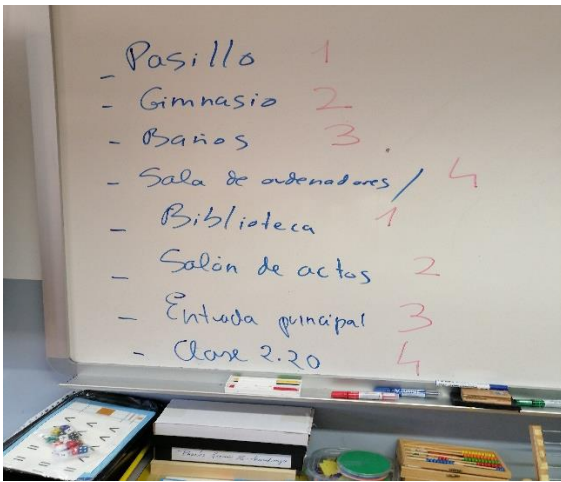 - Pasillo 1
- Gimnasio 2
- Baños 3
- Sala de ordenadores / 4
- Biblioteca 1
- Salón de actos 2
- Entrada principal 3
- Clase 2.20 4